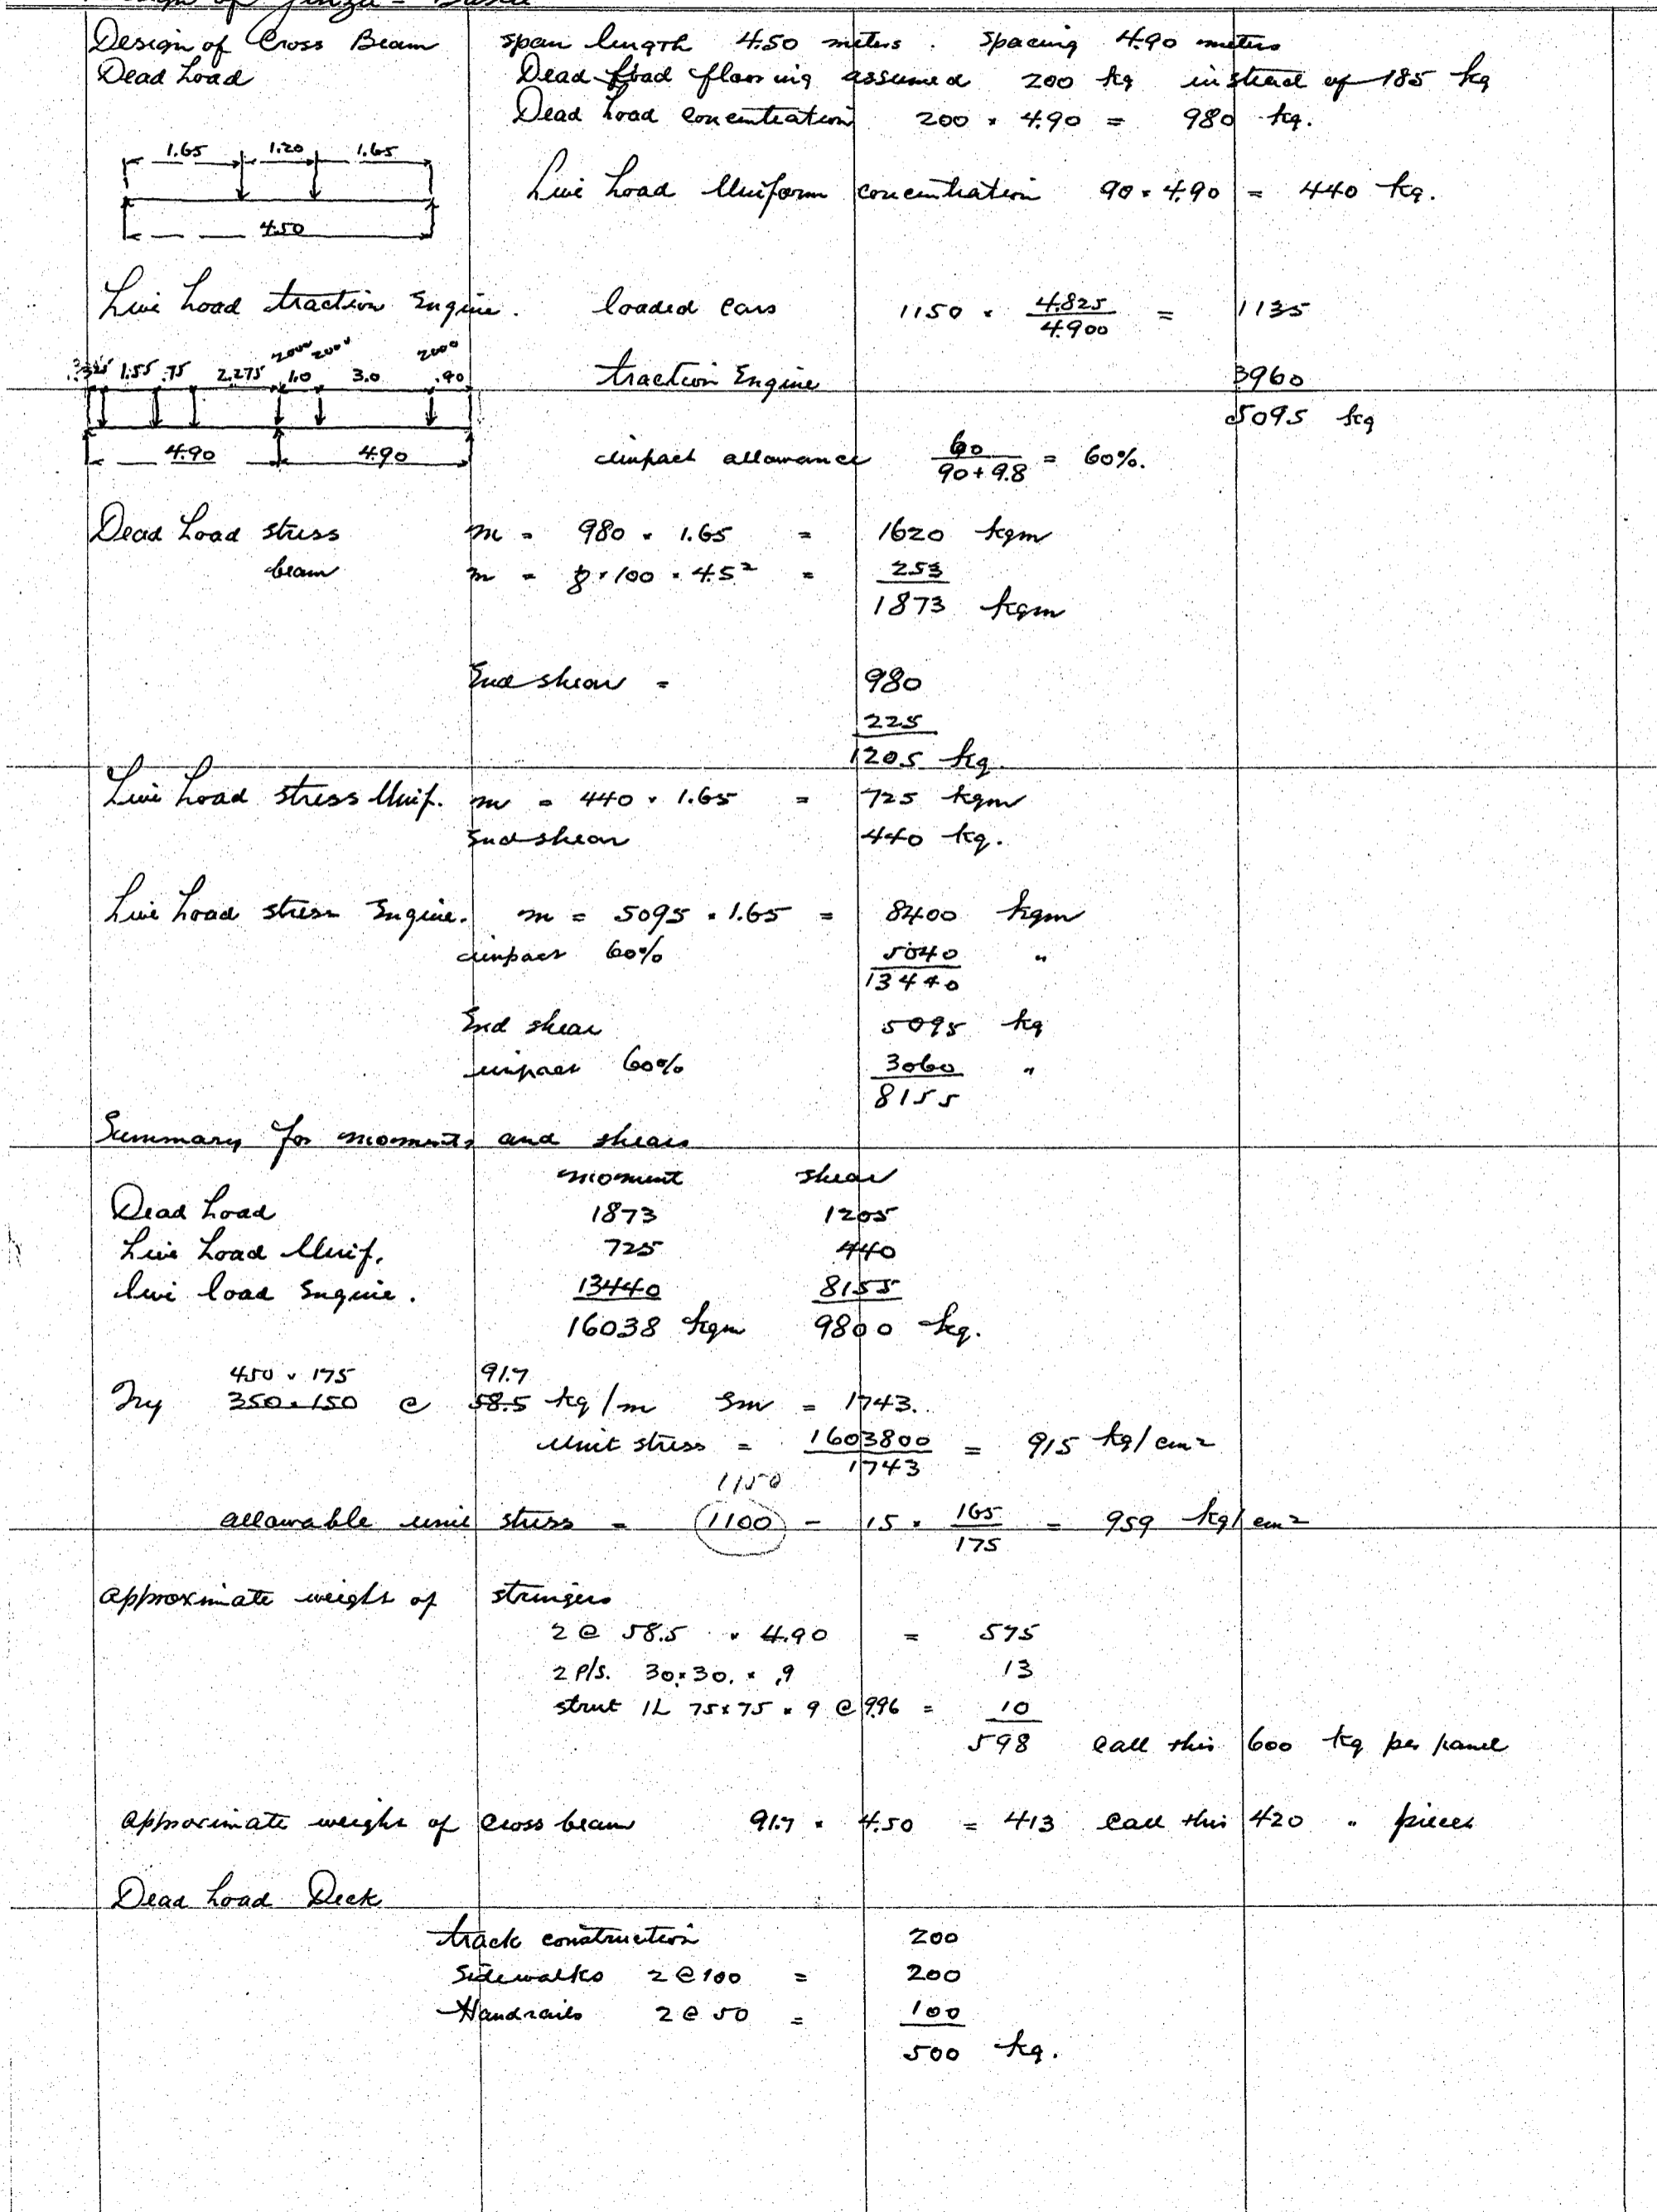 Design of Cross Beam span length 4.50 meters. Spacing 4.90 meters
Dead Load Dead load flooring assumed 200 kg instead of 185 kg
Dead Load concentration 200 × 4.90 = 980 kg.
1.65 1.20 1.65
Live Load Uniform concentration 90 × 4.90 = 440 kg.
4.50
Live Load traction Engine. loaded cars 1150 × 4.825/4.900 = 1135
2000 2000 2000
.325 1.55 .75 2.275 1.0 3.0 .90
traction Engine 3960
5095 kg
4.90 4.90
impact allowance 60/90+9.8 = 60%.
Dead Load stress m = 980 × 1.65 = 1620 kgm
beam m = 1/8 × 100 × 4.5² = 253
1873 kgm
End shear = 980
225
1205 kg.
Live Load stress Unif. m = 440 × 1.65 = 725 kgm
End shear 440 kg.
Live Load stress Engine. m = 5095 × 1.65 = 8400 kgm
impact 60% 5040 "
13440
End shear 5095 kg
impact 60% 3060 "
8155
Summary for moments and shears
moment shear
Dead Load 1873 1205
Live Load Unif. 725 440
live load Engine. 13440 8155
16038 kgm 9800 kg.
450 × 175 91.7
Try 350×150 @ 58.5 kg/m Sm = 1743.
Unit stress = 1603800/1743 = 915 kg/cm²
1150
allowable unit stress = 1100 - 15 × 165/175 = 959 kg/cm²
approximate weight of stringers
2 @ 58.5 × 4.90 = 575
2 pls. 30×30. × .9 13
strut 1L 75×75 × 9 @ 9.96 = 10
598 call this 600 kg per panel
approximate weight of cross beam 91.7 × 4.50 = 413 call this 420 " pieces
Dead Load Deck
track construction 200
Sidewalks 2 @ 100 = 200
Handrails 2 @ 50 = 100
500 kg.